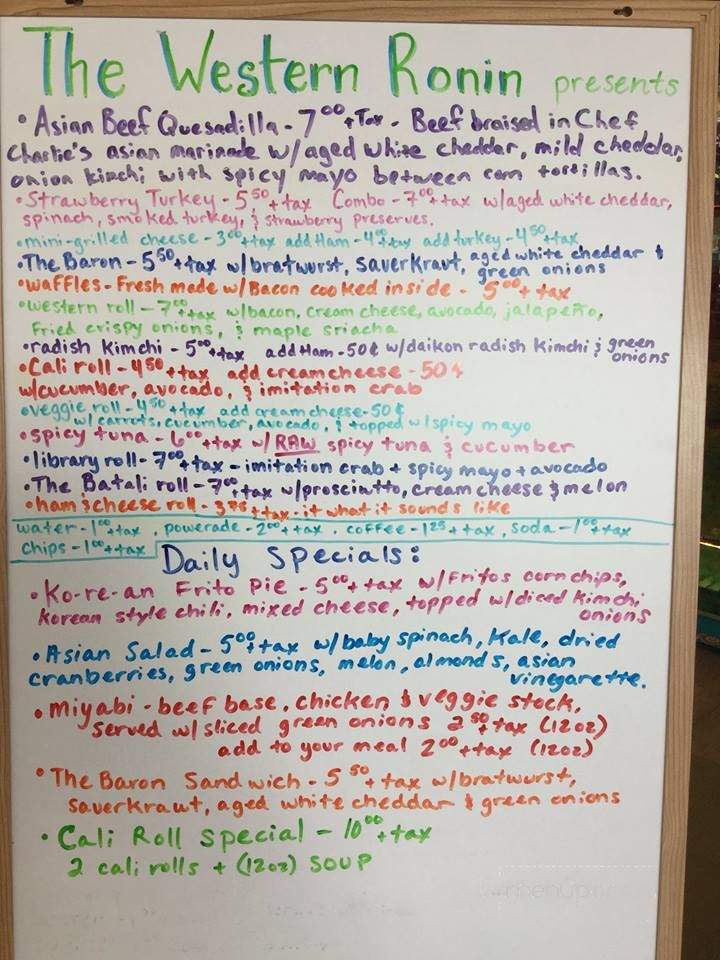 The Western Ronin presents
• Asian Beef Quesadilla - 7⁰⁰ + Tax - Beef braised in Chef
Charlie's asian marinade w/aged white cheddar, mild cheddar,
onion kimchi with spicy mayo between corn tortillas.
• Strawberry Turkey - 5⁵⁰ + tax Combo - 7⁰⁰ + tax w/aged white cheddar,
spinach, smoked turkey, & strawberry preserves.
• mini-grilled cheese - 3⁰⁰ + tax add Ham - 4⁰⁰ + tax add turkey - 4⁵⁰ + tax
• The Baron - 5⁵⁰ + tax w/bratwurst, saverkravt, aged white cheddar &
green onions
• waffles - Fresh made w/Bacon cooked inside - 5⁰⁰ + tax
• western roll - 7⁰⁰ + tax w/bacon, cream cheese, avocado, jalapeño,
fried crispy onions, & maple sriacha
• radish kimchi - 5⁰⁰ + tax add Ham - 50¢ w/daikon radish kimchi & green
onions
• Cali roll - 4⁵⁰ + tax add creamcheese - 50¢
w/cucumber, avocado, & imitation crab
• veggie roll - 4⁵⁰ + tax add creamcheese - 50¢
w/carrots, cucumber, avocado, & topped w/spicy mayo
• spicy tuna - 6⁰⁰ + tax w/RAW spicy tuna & cucumber
• library roll - 7⁰⁰ + tax - imitation crab + spicy mayo + avocado
• The Batali roll - 7⁰⁰ + tax w/prosciutto, cream cheese & melon
• ham & cheese roll - 3⁷⁵ + tax - it what it sounds like
water - 1⁰⁰ + tax, powerade - 2⁰⁰ + tax, coffee - 1²⁵ + tax, soda - 1⁰⁰ + tax
chips - 1⁰⁰ + tax
Daily Specials:
• Ko-re-an Frito Pie - 5⁰⁰ + tax w/Fritos corn chips,
korean style chili, mixed cheese, topped w/diced kimchi
onions
• Asian Salad - 5⁰⁰ + tax w/baby spinach, kale, dried
cranberries, green onions, melon, almonds, asian
vinegarette.
• miyabi - beef base, chicken & veggie stock,
served w/sliced green onions 2⁵⁰ + tax (12oz)
add to your meal 2⁰⁰ + tax (12oz)
• The Baron Sandwich - 5⁵⁰ + tax w/bratwurst,
saverkraut, aged white cheddar & green onions
• Cali Roll Special - 10⁰⁰ + tax
2 cali rolls + (12oz) SOUP